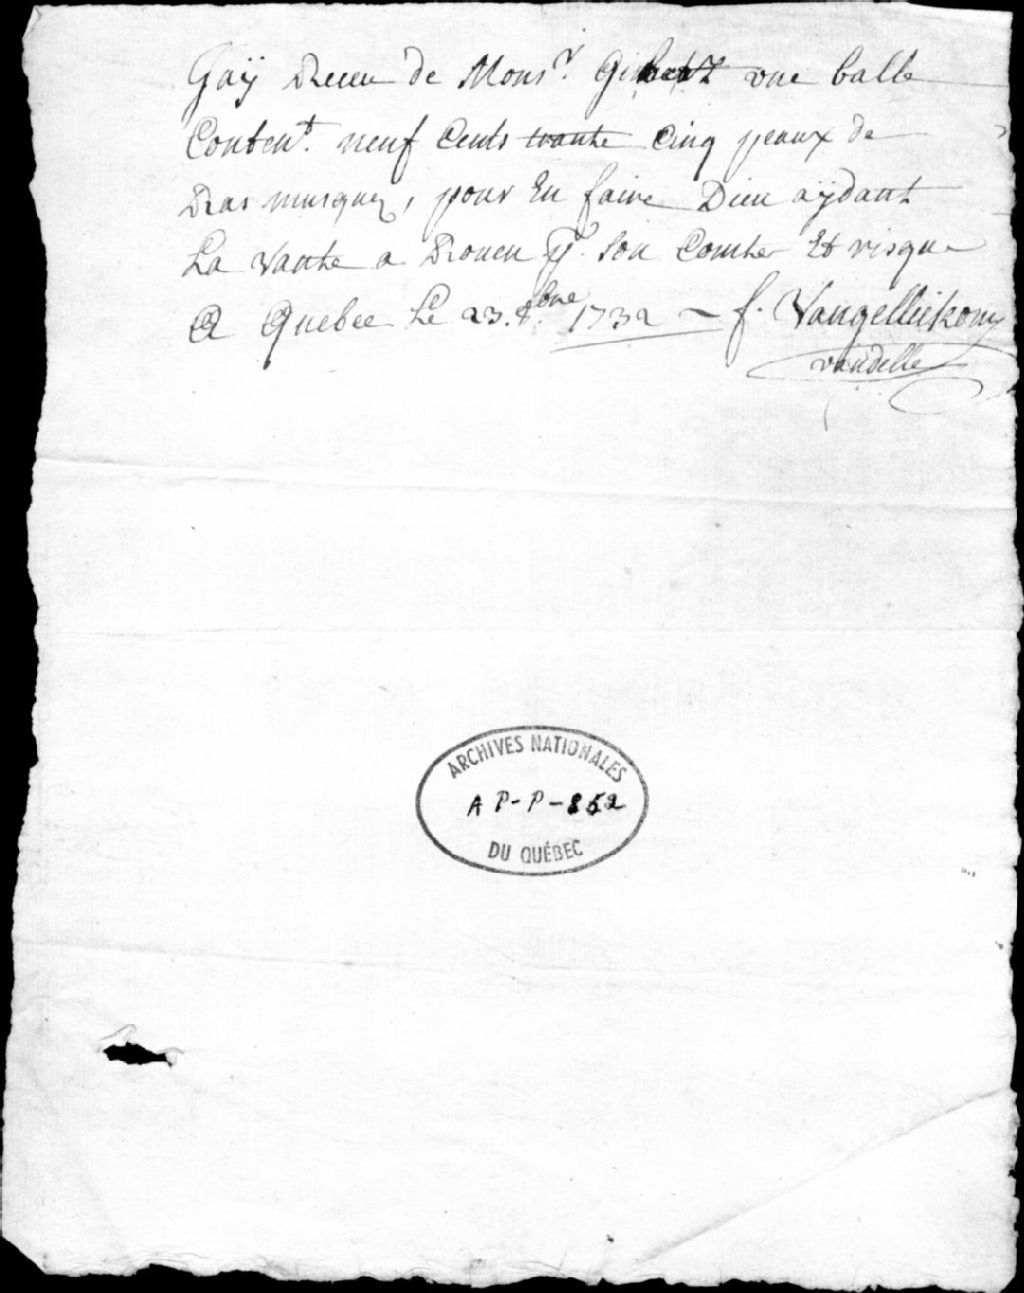 Gaÿ Receu de Mons.r vne balle
Conten.t neuf Cents trante Cinq peaux de
Ras musquez, pour En faire Dieu aÿdant
La vante a Rouen p.r son Comte Et risque
A Quebec Le 23. 8.bre 1732 — f.
vandelle
ARCHIVES NATIONALES
A P-P-852
DU QUÉBEC